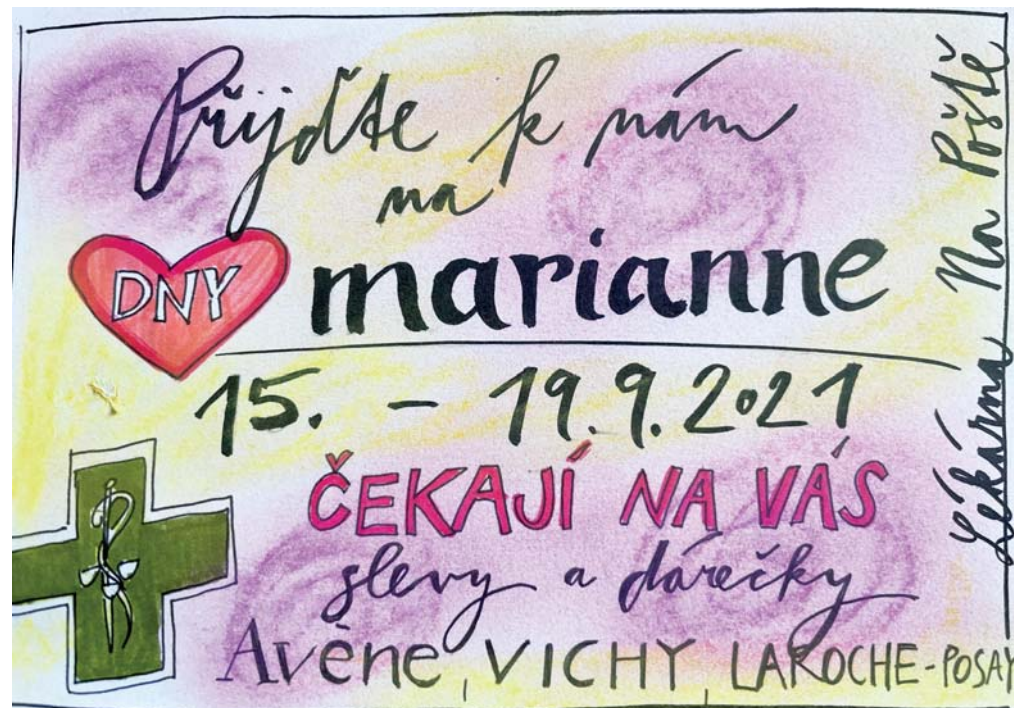 Přijďte k nám
na
DNY marianne
15. – 19.9.2021
ČEKAJÍ NA VÁS
slevy a dárečky
Avène, VICHY, LAROCHE-POSAY
Lékárna Na Poště